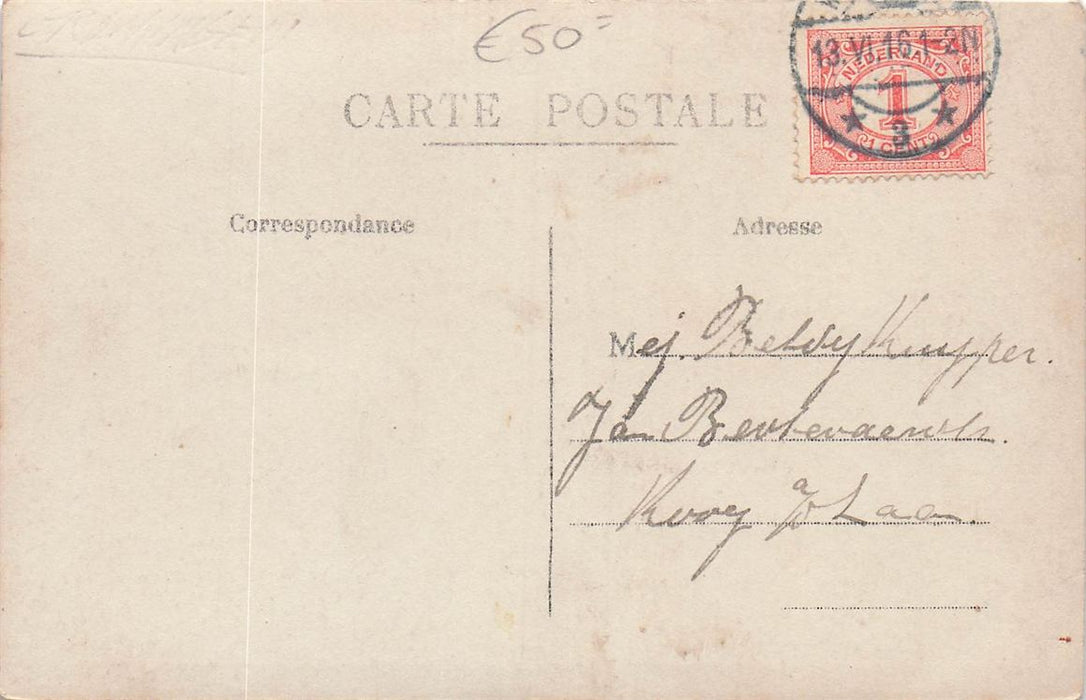 €50=
CARTE POSTALE
13.VI.16.1-2N
NEDERLAND
1
3
1 CENT
Correspondance
Adresse
Mej. Betsy Kuyper.
Jan
Koog a/d Laan.